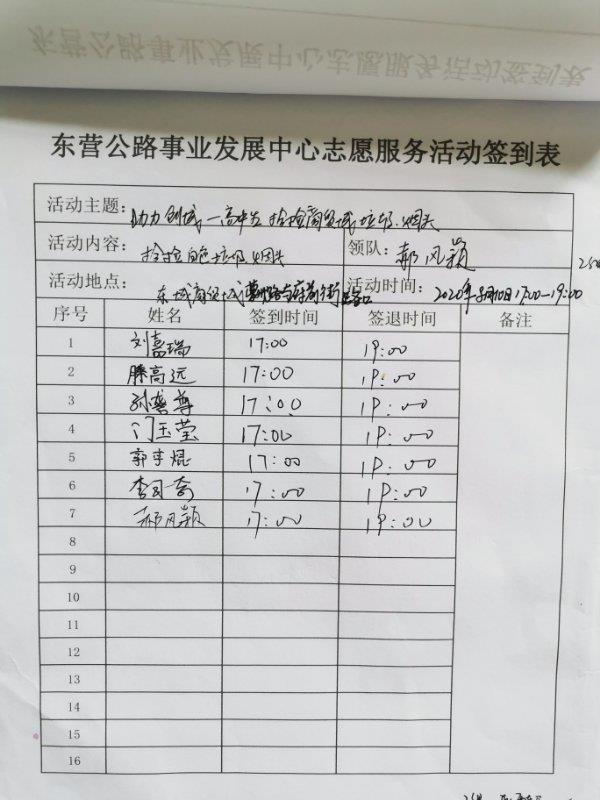 东营公路事业发展中心志愿服务活动签到表
东营公路事业发展中心志愿服务活动签到表
活动主题：助力创城 捡拾商贸城垃圾、烟头
活动内容：捡拾白色垃圾、烟头 领队：郝风颖
活动地点：东城商贸城 路与府前街 口 活动时间：2020年8月10日17:00—19:00
序号 姓名 签到时间 签退时间 备注
1 刘嘉瑞 17:00 19:00
2 滕高远 17:00 19:00
3 孙 尊 17:00 19:00
4 门玉莹 17:00 19:00
5 郭亨焜 17:00 19:00
6 李 17:00 19:00
7 郝风颖 17:00 19:00
8
9
10
11
12
13
14
15
16